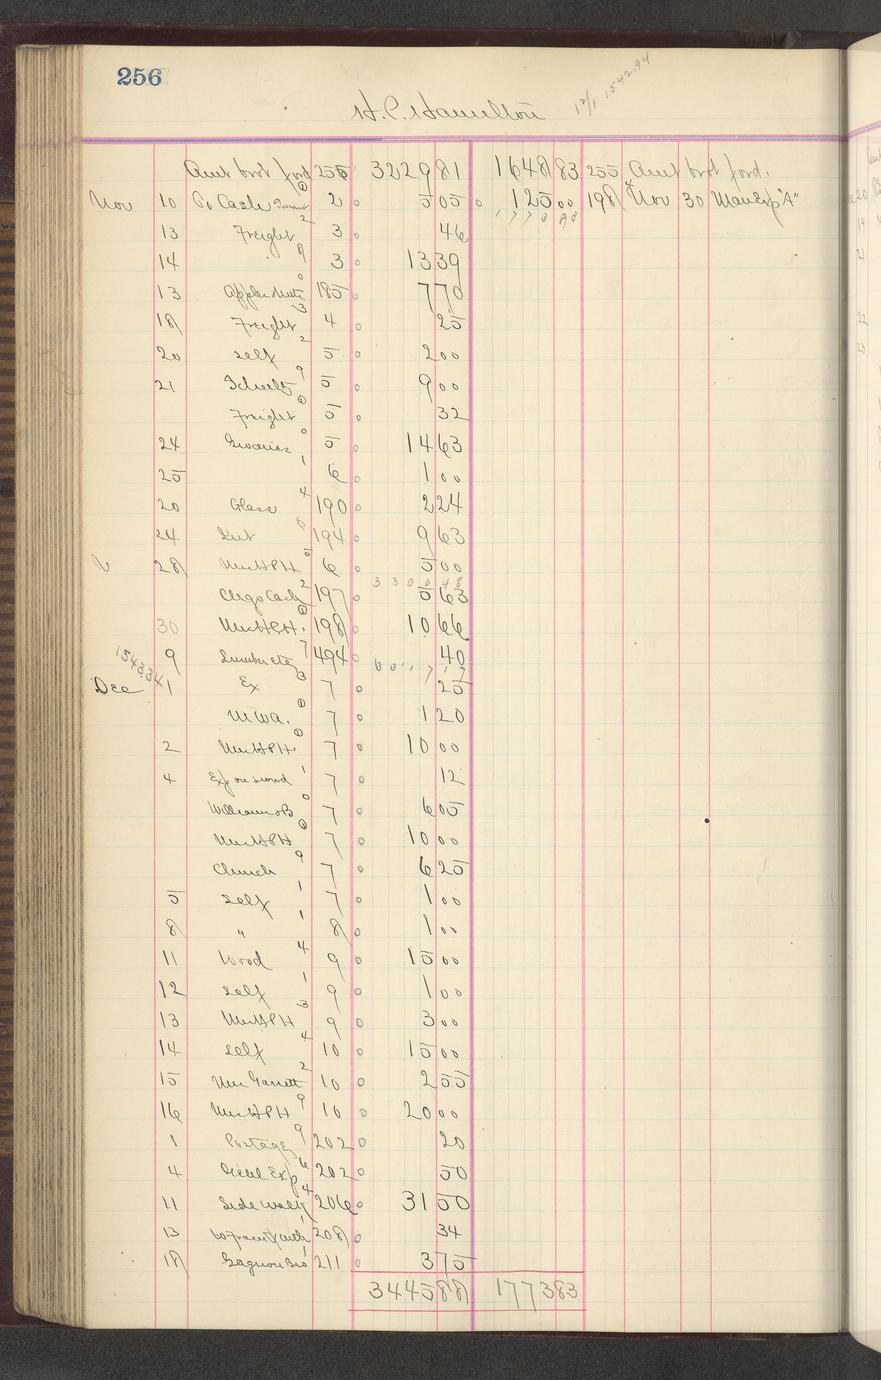 256
H.P. Hamilton 12/1 1542.94
Amt brot ford 255 3229 81 1648 83 255 Amt brot ford.
Nov 10 To Cash 2 5 05 125 00 198 Nov 30 Man Exp "A"
1773 83
13 Freight 3 46
14 " 3 13 39
13 Apples 185 7 70
18 Freight 4 25
20 Self 5 2 00
21 Schultz 5 9 00
Freight 5 32
24 Groceries 5 14 63
25 6 1 00
20 Glass 190 2 24
24 194 9 63
28 Mrs HPH 6 5 00
3300 48
Chgo Cash 197 5 63
30 Mrs HPH. 198 10 66
9 Lumber etc 494 40
1543.34
Dec 1 Ex 7 25
M.W.A. 7 1 20
2 Mrs HPH. 7 10 00
4 Exp on wood 7 12
Williams B 7 6 05
Mrs HPH 7 10 00
Church 7 6 25
5 Self 7 1 00
8 " 8 1 00
11 Wood 9 15 00
12 Self 9 1 00
13 Mrs HPH 9 3 00
14 Self 10 15 00
15 Garrett 10 2 55
16 Mrs HPH 10 20 00
1 Postage 202 20
4 Exp 202 50
11 Side Walk 206 31 50
13 208 34
18 Gagnon Bro 211 3 75
3445 88 1773 83